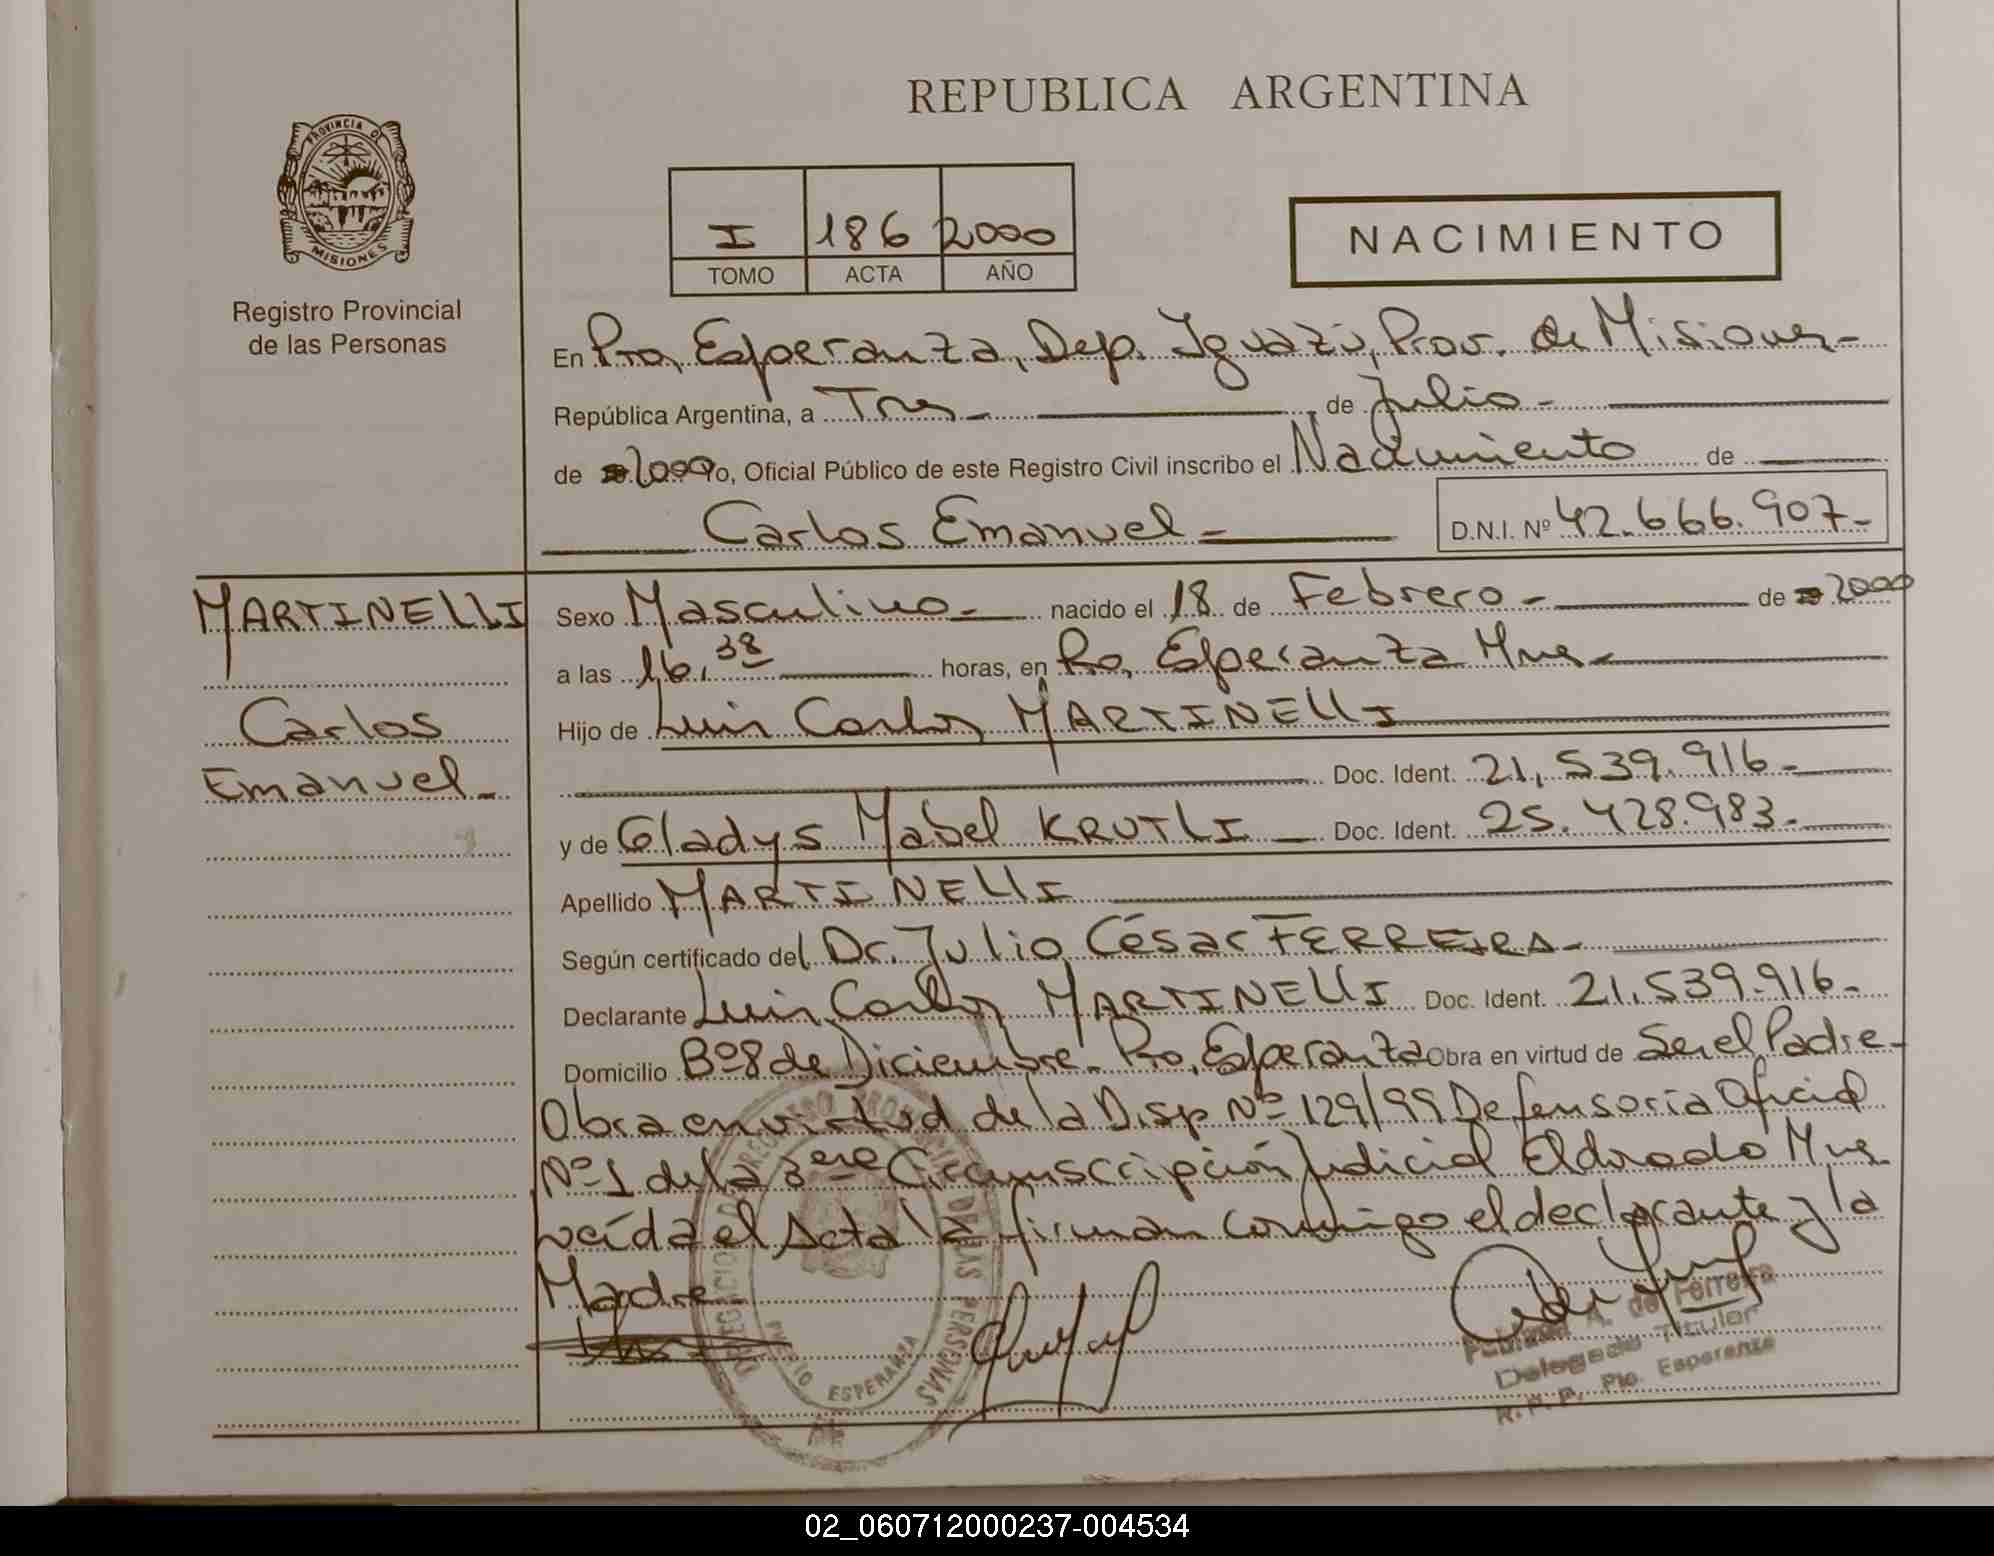 REPUBLICA ARGENTINA
PROVINCIA DE
MISIONES
Registro Provincial
de las Personas
I 186 2000
TOMO ACTA AÑO
NACIMIENTO
En Pto, Esperanza, Dep. Iguazú, Prov. de Misiones-
República Argentina, a Tres- de Julio-
de 2000 yo, Oficial Público de este Registro Civil inscribo el Nacimiento de
Carlos Emanuel- D.N.I. Nº 42.666.907-
MARTINELLI
Carlos
Emanuel-
Sexo Masculino- nacido el 18 de Febrero- de 2000
a las 16,38 horas, en Pto, Esperanza Mnes-
Hijo de Luis Carlos MARTINELLI
Doc. Ident. 21,539.916-
y de Gladys Mabel KRUTLI - Doc. Ident. 25.428.983-
Apellido MARTINELLI
Según certificado del Dr. Julio César FERREIRA-
Declarante Luis Carlos MARTINELLI Doc. Ident. 21,539.916-
Domicilio Bº 8 de Diciembre- Pto, Esperanza Obra en virtud de Ser el Padre-
Obra en virtud de la Disp Nº 129/99 Defensoría Oficial
Nº 1 de la 3era Circunscripción Judicial Eldorado Mnes
Leída el Acta la firman conmigo el declarante y la
Madre-
DE LAS PERSONAS
ESPERANZA
A. de Ferreira
Delegado Titular
R. P. P. Pto. Esperanza
02_060712000237-004534